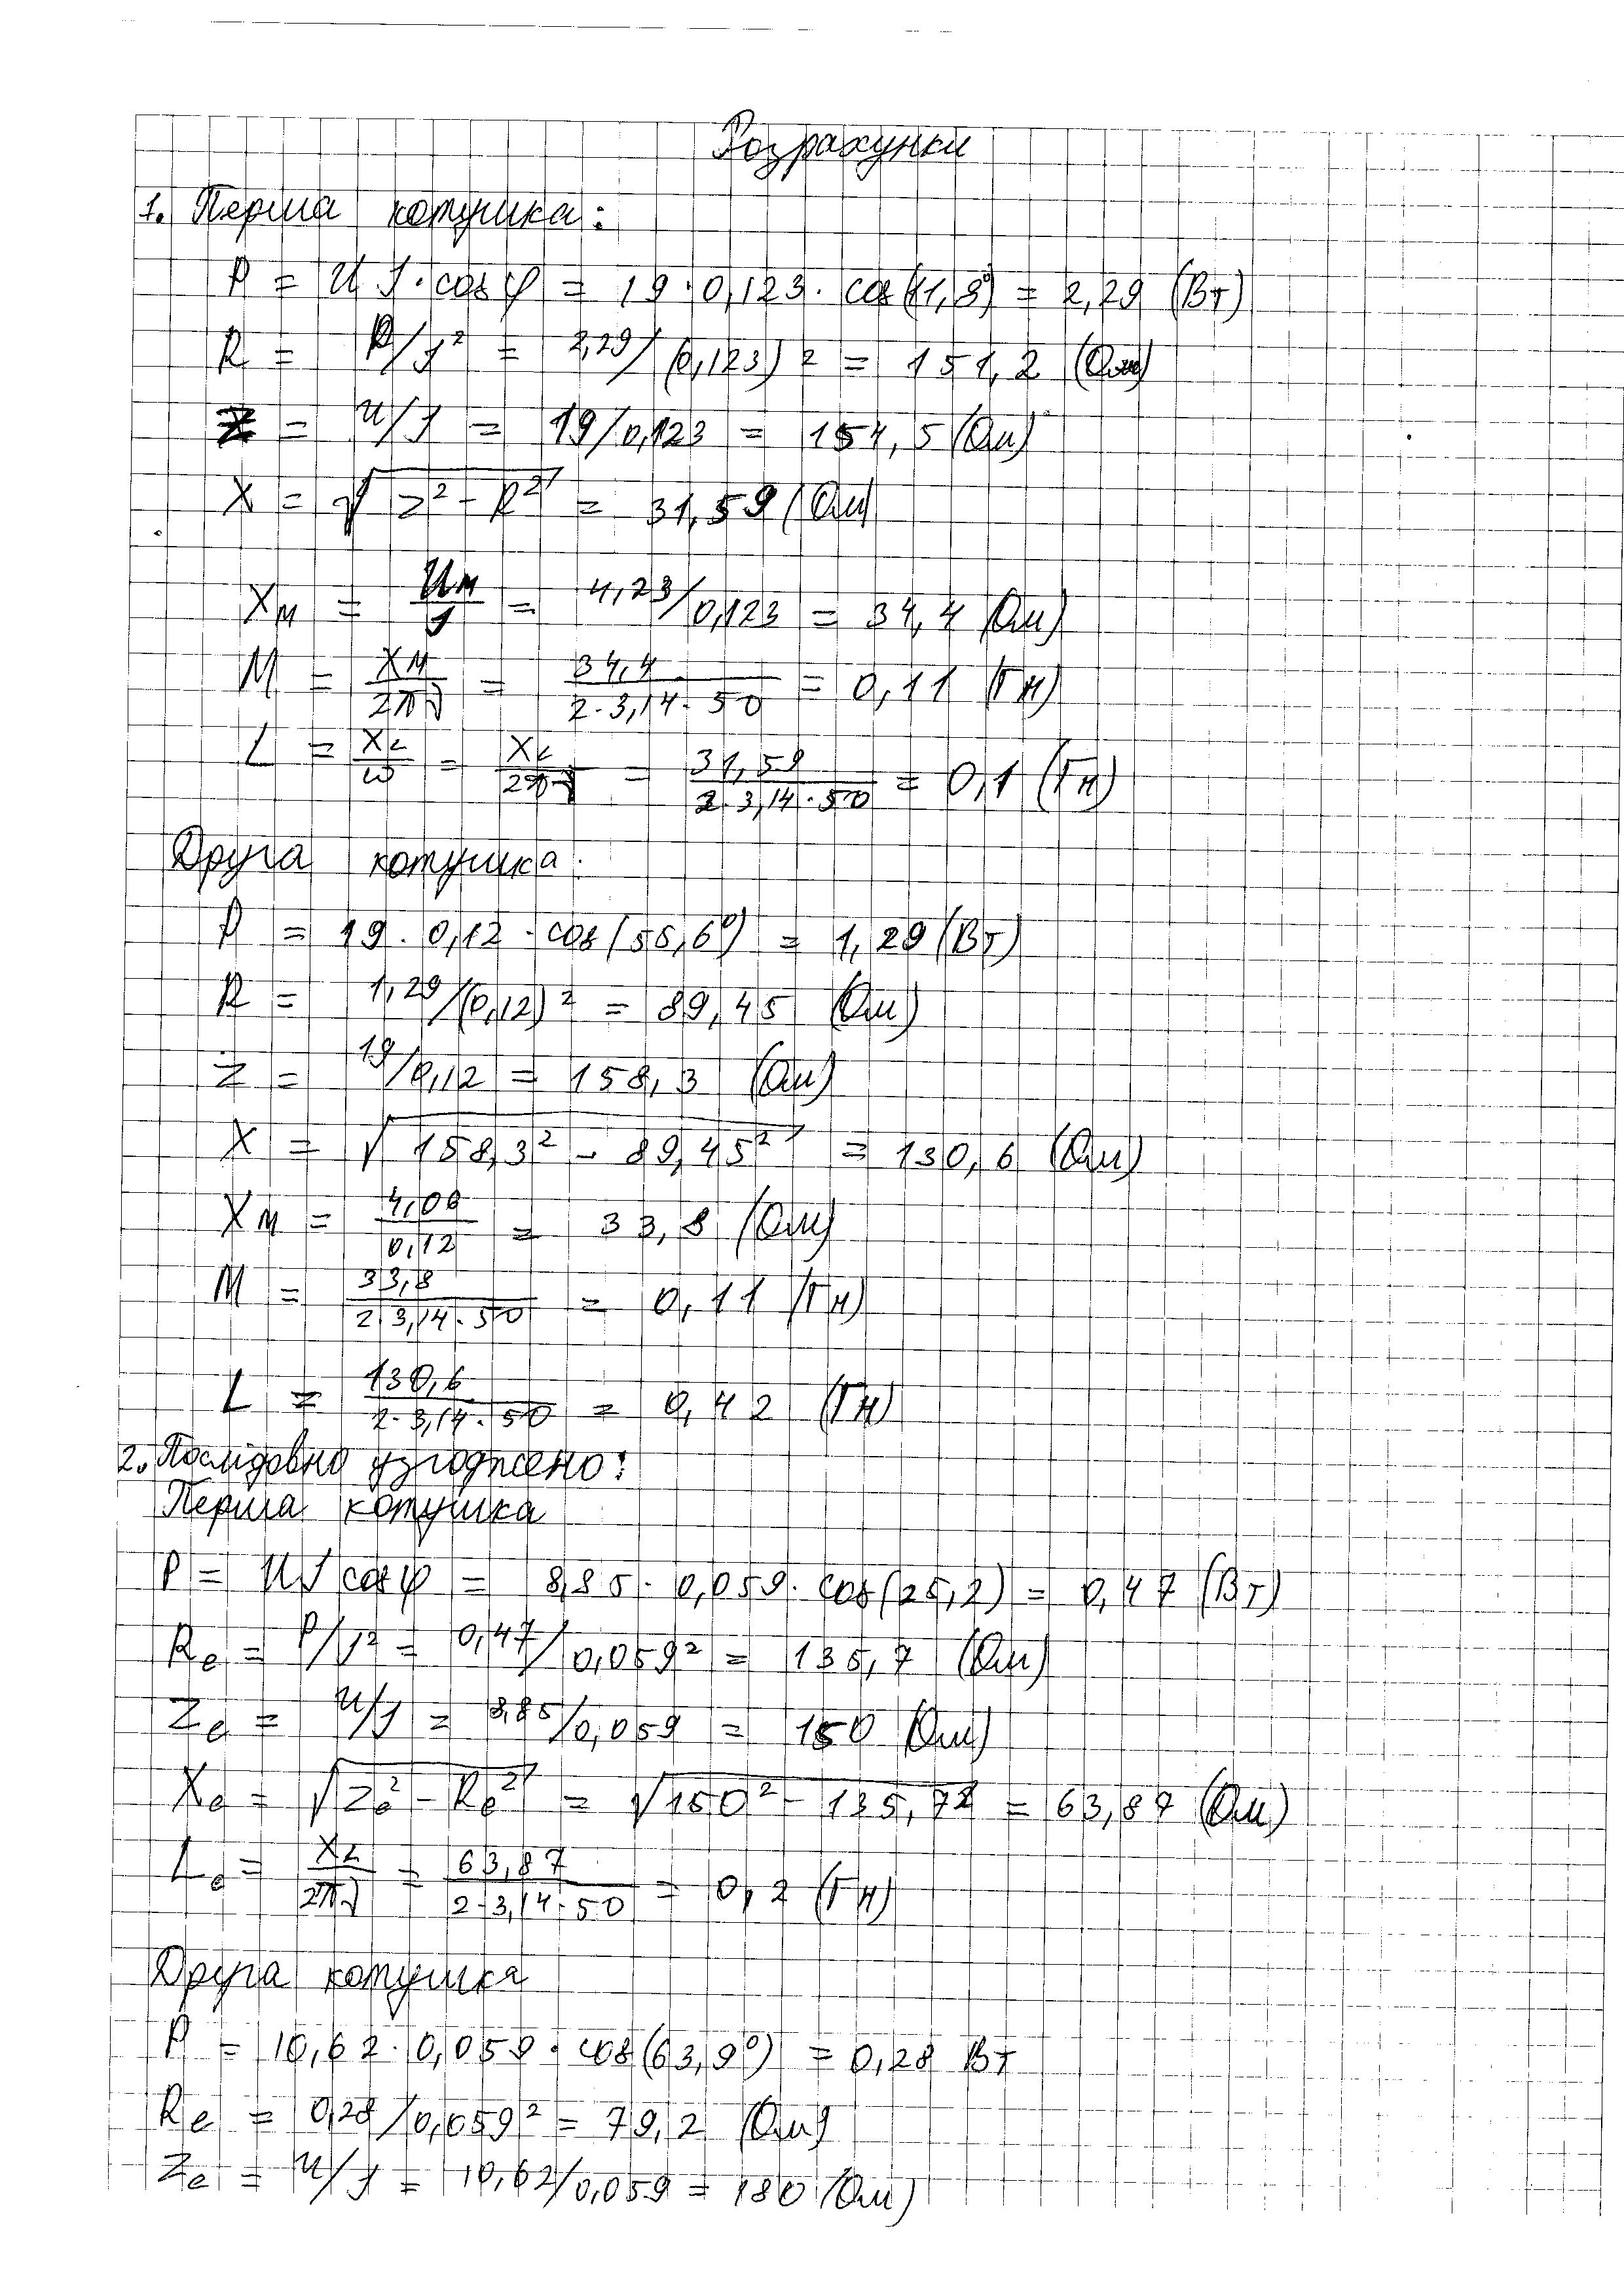 Розрахунки
1. Перша котушка:
P = UI·cosφ = 19·0,123·cos(11,8°) = 2,29 (Вт)
R = P/I² = 2,29/(0,123)² = 151,2 (Ом)
Z = U/I = 19/0,123 = 154,5 (Ом)
X = √(Z² - R²) = 31,59 (Ом)
Xм = Uм/I = 4,23/0,123 = 34,4 (Ом)
M = Xм/2πf = 34,4/2·3,14·50 = 0,11 (Гн)
L = XL/ω = XL/2πf = 31,59/2·3,14·50 = 0,1 (Гн)
Друга котушка:
P = 19·0,12·cos(55,6°) = 1,29 (Вт)
R = 1,29/(0,12)² = 89,45 (Ом)
Z = 19/0,12 = 158,3 (Ом)
X = √(158,3² - 89,45²) = 130,6 (Ом)
Xм = 4,06/0,12 = 33,8 (Ом)
M = 33,8/2·3,14·50 = 0,11 (Гн)
L = 130,6/2·3,14·50 = 0,42 (Гн)
2. Послідовно узгоджено:
Перша котушка
P = UI cosφ = 8,85·0,059·cos(25,2) = 0,47 (Вт)
Re = P/I² = 0,47/0,059² = 135,7 (Ом)
Ze = U/I = 8,85/0,059 = 150 (Ом)
Xe = √(Ze² - Re²) = √(150² - 135,7²) = 63,87 (Ом)
Le = XL/2πf = 63,87/2·3,14·50 = 0,2 (Гн)
Друга котушка
P = 10,62·0,059·cos(63,9°) = 0,28 Вт
Re = 0,28/0,059² = 79,2 (Ом)
Ze = U/I = 10,62/0,059 = 180 (Ом)